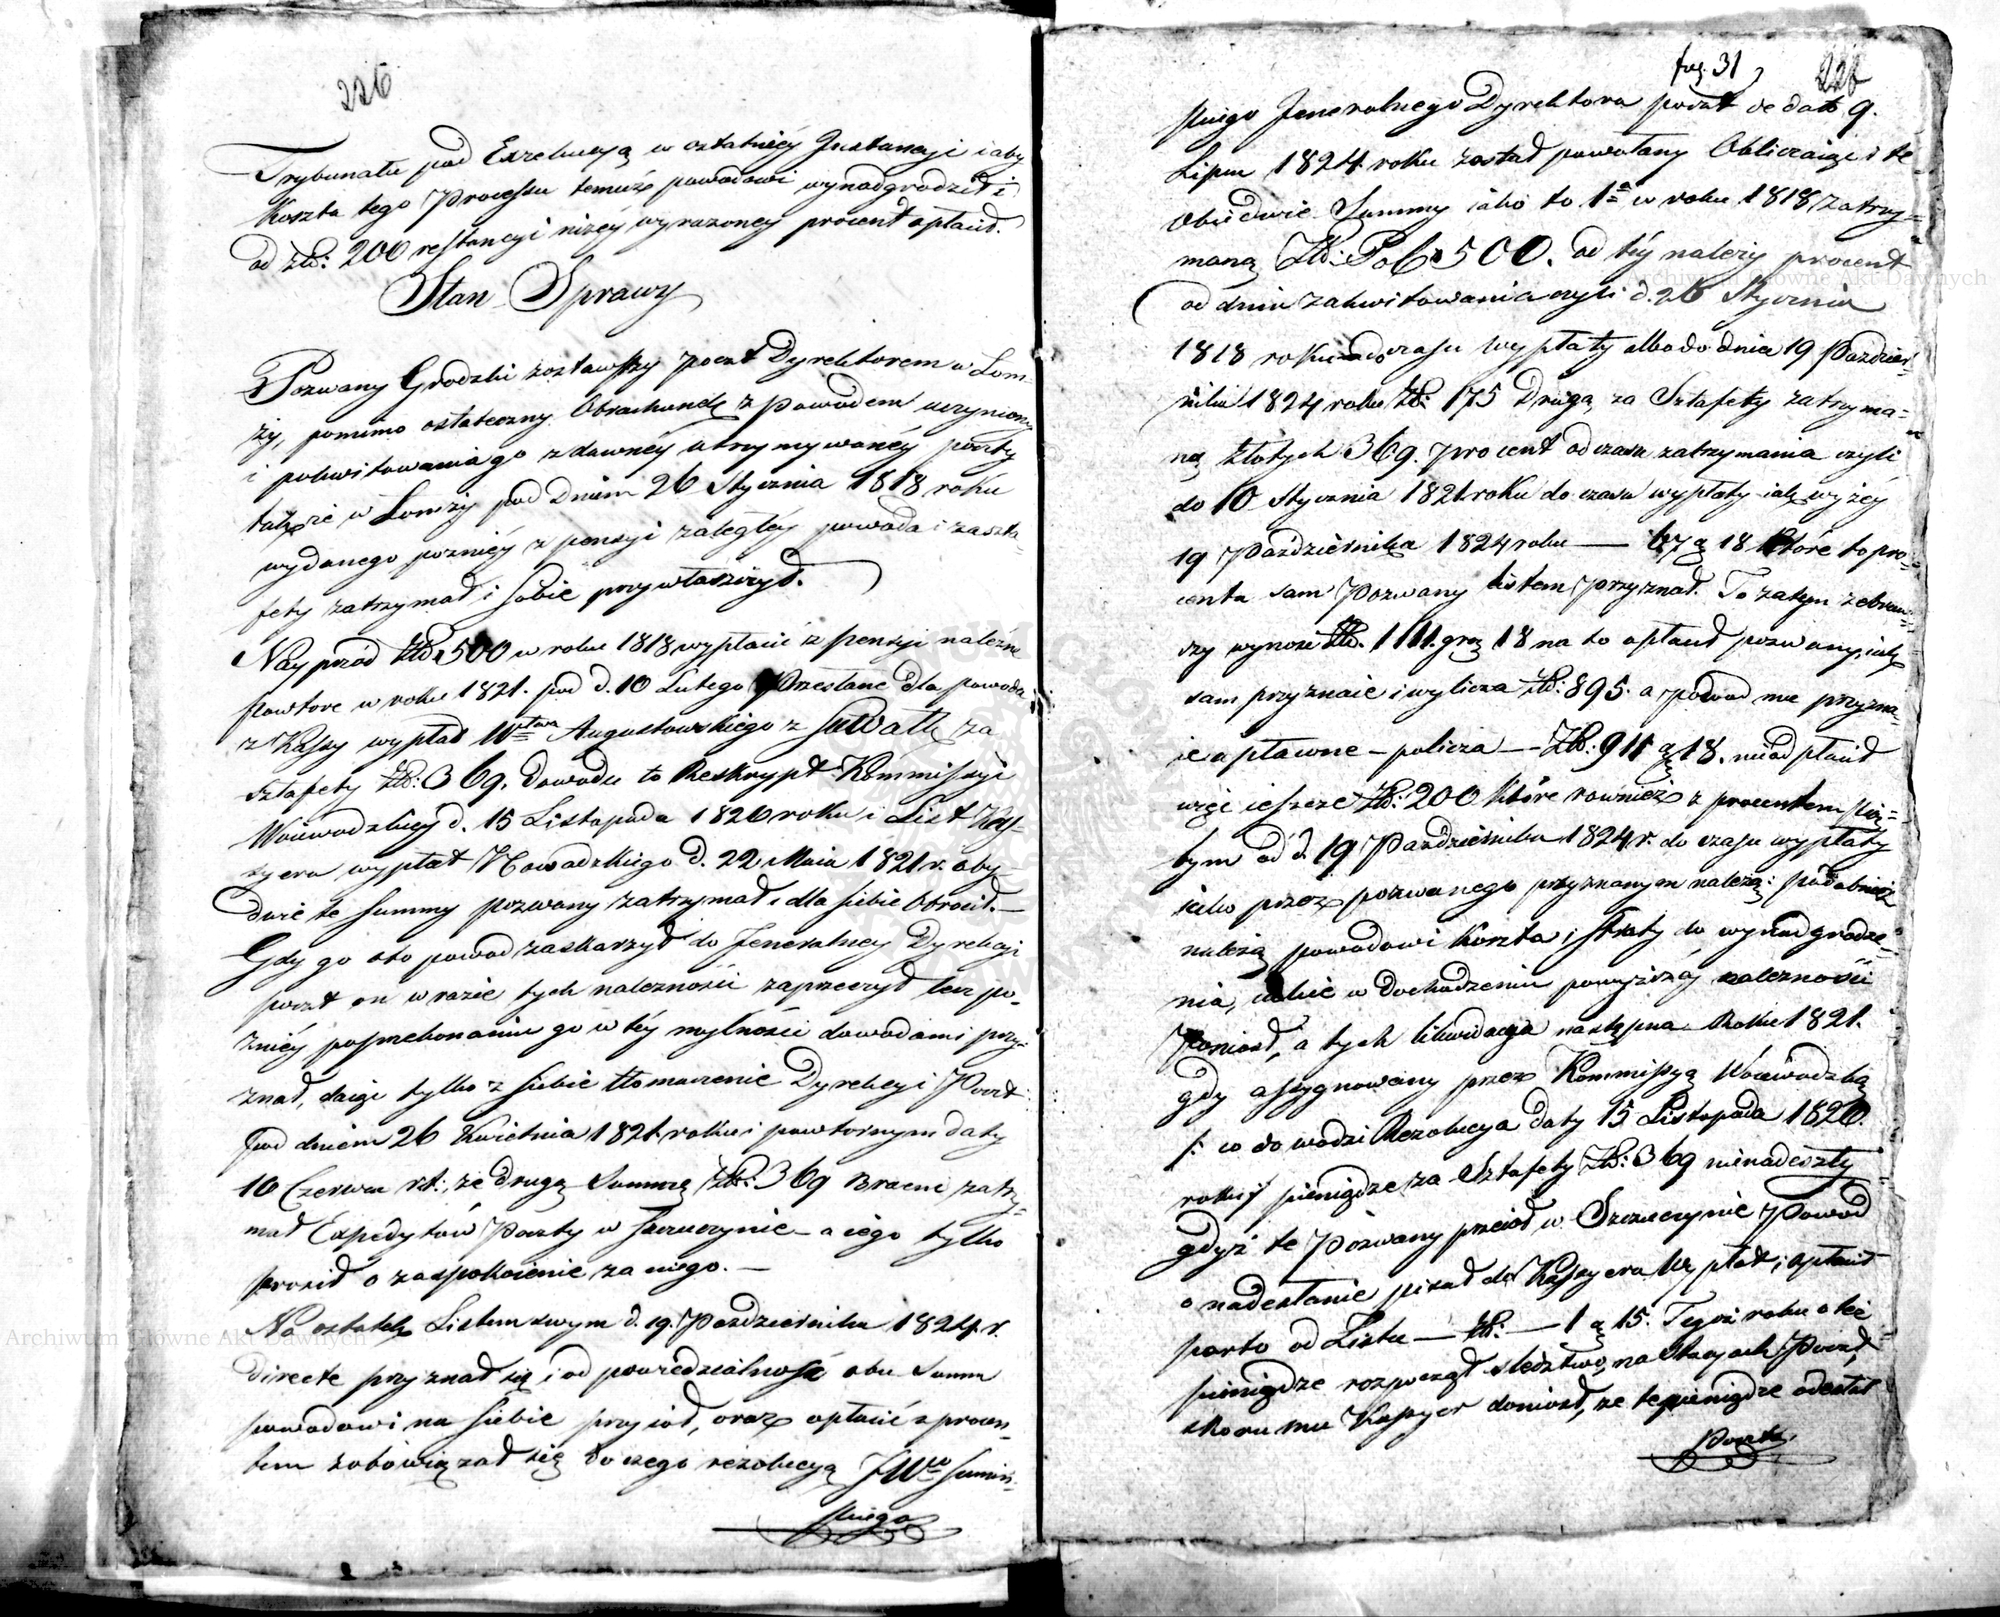 226
Trybunału pod Exekucyą w ostatniey Instancyi i aby
Koszta tego Processu temuż powodowi wynadgrodził i
od złł: 200 restancyi niżey wyrażoney procent opłacił.
Stan Sprawy
Pozwany Grodzki zostawszy Poczt Dyrektorem w Łom=
ży, pomimo ostateczny Obrachunek z Powodem uczyniony
i pokwitowania go z dawney utrzymywaney poczty
także w Łomży pod Dniem 26 Stycznia 1818 roku
wydanego pozniey z pensyi zaległey powoda i za szta=
fety zatrzymał i sobie przywłaszczył.
Nayprzód złł. 500 w roku 1818 wypłacić iż pensyi należne
powtore w roku 1821. pod d. 10 Lutego Przesłane dla powoda
z Kassy wypłat Wdztwa Augustowskiego z Suwałk za
sztafety złł: 369. Dowodu to Reskrypt Kommissyi
Woiewodzkiey d. 15 Listopada 1820 roku i List Kas=
syera wypłat Nowadzkiego d. 22 Maia 1821 r. oby=
dwie te summy pozwany zatrzymał i dla siebie Obrócił.—
Gdy go oto powod zaskarżył do Jeneralney Dyrekcyi
poczt on w razie tych należności zaprzeczył lecz po=
zniéy po przekonaniu go w téy mylności dowodami przy=
znał, daiąc tylko z siebie tłomaczenie Dyrekcyi Poczt
pod dniem 26 Kwietnia 1821 roku i powtornym daty
10 Czerwca r.t:, że drugą Summę złł: 369 Bracni zatrzy=
mał Expedytów Poczty w Szczuczynie — a iego tylko
prosił o zaspokoienie za niego.—
Na ostatek Listem swym d. 19. Października 1824 r.
directe przyznał się i odpowiedzialność obu Summ
powodowi na siebie przyiął, oraz opłacić z procen=
tem zobowiązał się do czego rezolucyą JWgo Sumiń=
skiego
fng. 31
228
skiego Jeneralnego Dyrektora poczt de dato 9.
Lipca 1824 roku został powołany Obliczaiąc i te
Obiedwie Summy iako to 1ą w roku 1818 zatrzy=
maną Złł: Pol: 500. od téy należy procent
od dnia zakwitowania czyli d. 26 Stycznia
1818 roku do czasu wypłaty albo do dnia 19 Paździer=
nika 1824 roku złł: 175 Drugą za Sztafety zatrzyma=
ną złotych 369. procent od czasu zatrzymania czyli
do 10 Stycznia 1821 roku do czasu wypłaty iak wyżéy
19 Października 1824 roku — 67 g 18. Które to pro=
centa sam Pozwany listem przyznał. To zatym zebraw=
szy wynosi złł. 1111. grg 18 na to opłacił pozwany iak
sam przyznaie i wylicza złł: 895. a powod mu przyzna=
ie opławne — policza — złł: 911 g 18. nie od płacił
więc ieszcze złł: 200 które rownież z procentem
tym od d. 19 Października 1824 r. do czasu wypłaty
iako przez pozwanego przyznanym należą: podobnież
należą powodowi koszta i straty do wynadgrodze=
nia, iakie w dochodzeniu powyższéy należności
Poniosł, a tych likwidacya następna. Roku 1821.
gdy assygnowany przez Kommissyą Woiewodzką
/: co dowodzi Rezolucya daty 15 Listopada 1820.
roku:/ pieniądze za Sztafety złł: 369 nienadeszły
gdyż te Pozwany przeiął w Szczuczynie Powod
o nadesłanie pisał do Kassyera Wypłat, i opłacił
porto od Listu — złł: — 1 g 15. Tegoż roku o też
pieniądze rozpoczął śledztwo, na Stacyach Poczt,
skoro mu Kassyer doniosł, że te pieniądze odesłał
Pocztą
Archiwum Główne Akt Dawnych
Archiwum Główne Akt Dawnych